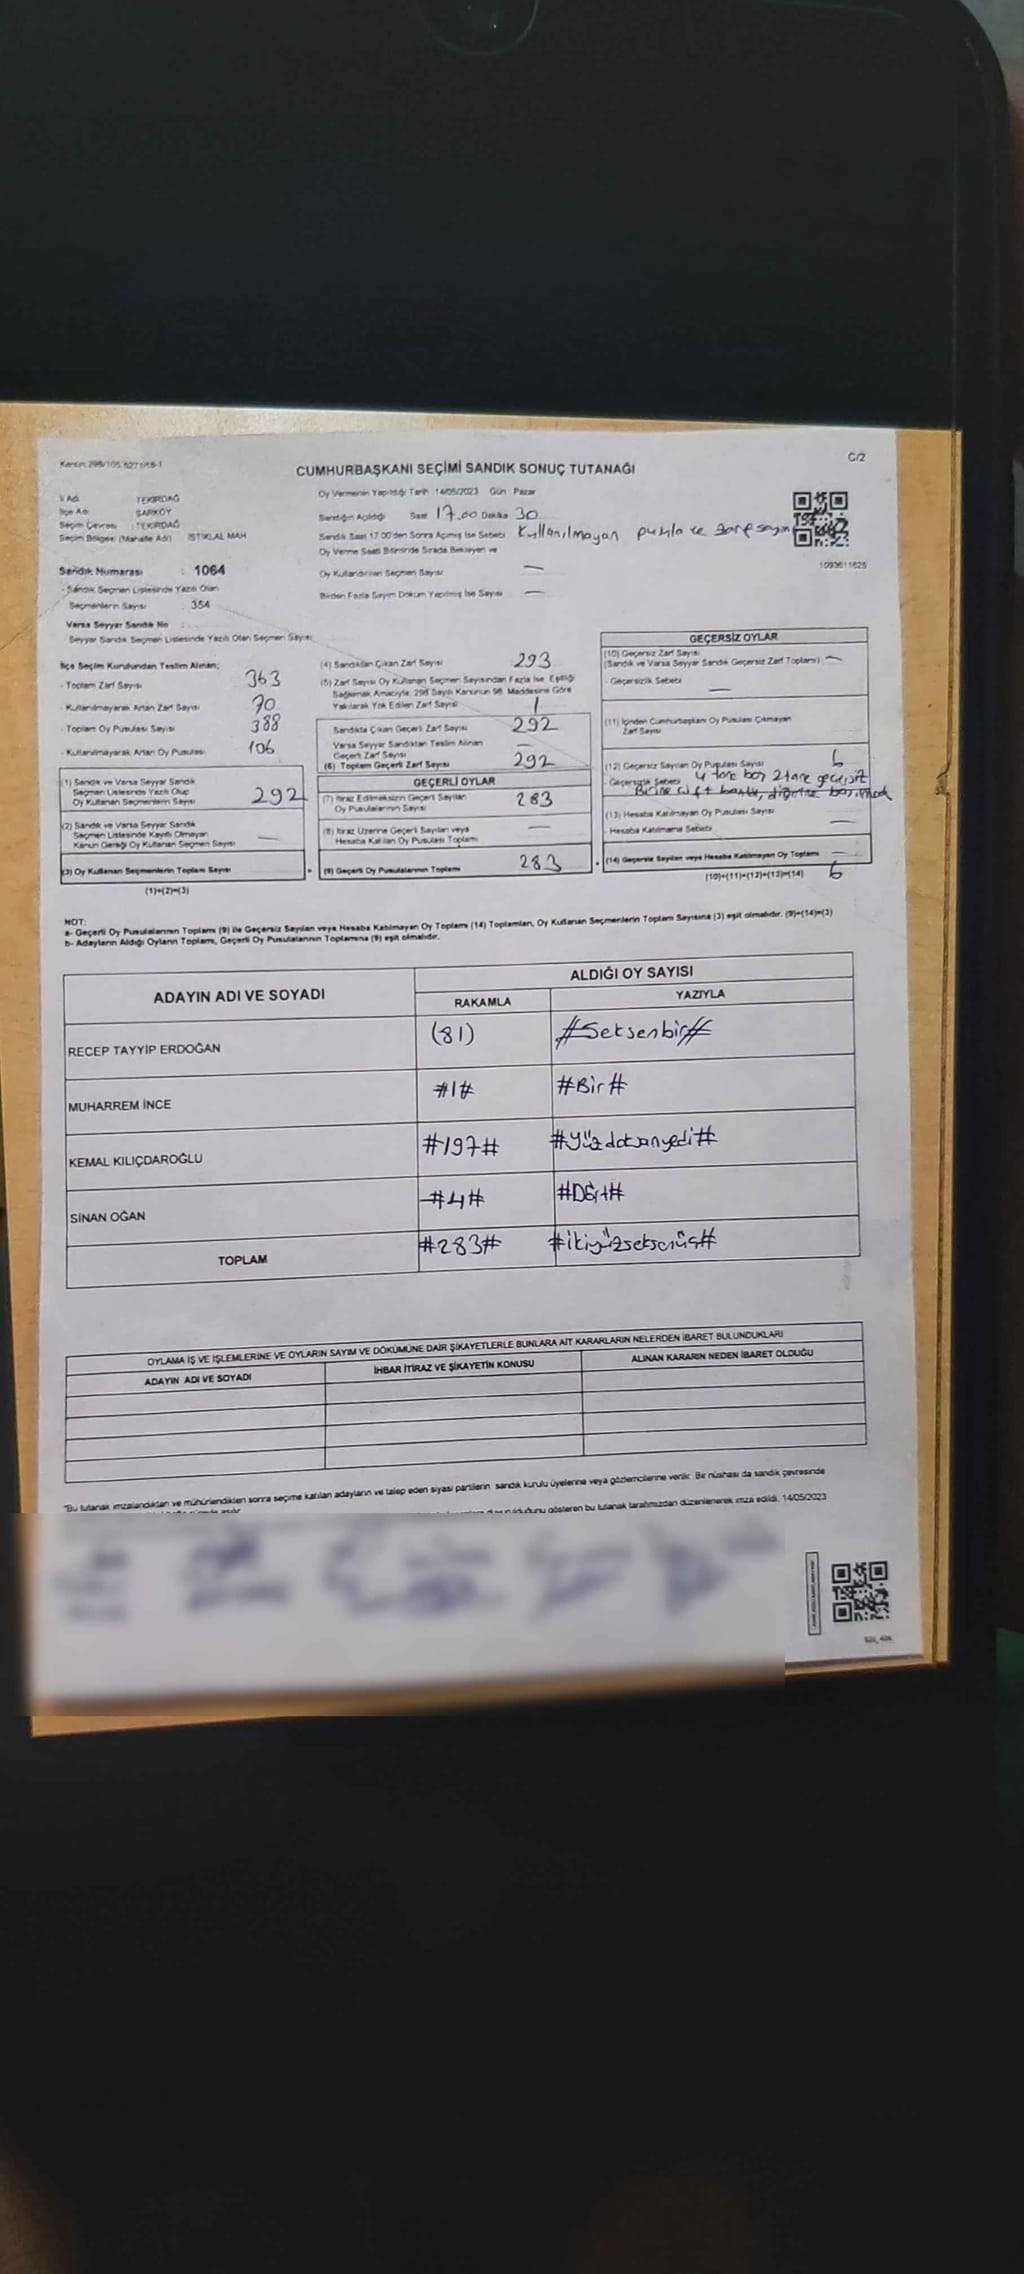 Kanun 298/105 6271/18-1
C/2
CUMHURBAŞKANI SEÇİMİ SANDIK SONUÇ TUTANAĞI
İl Adı TEKİRDAĞ
İlçe Adı ŞARKÖY
Seçim Çevresi : TEKİRDAĞ
Seçim Bölgesi (Mahalle Adı) İSTİKLAL MAH
Oy Vermenin Yapıldığı Tarih 14/05/2023 Gün Pazar
Sandığın Açıldığı Saat 17.00 Dakika 30
Sandık Saat 17.00'den Sonra Açılmış İse Sebebi Kullanılmayan pusula ve zarf sayım
Oy Verme Saati Bitiminde Sırada Bekleyen ve
Oy Kullandırılan Seçmen Sayısı —
Birden Fazla Sayım Döküm Yapılmış İse Sayısı —
1093611625
Sandık Numarası : 1064
- Sandık Seçmen Listesinde Yazılı Olan
Seçmenlerin Sayısı : 354
Varsa Seyyar Sandık No :
- Seyyar Sandık Seçmen Listesinde Yazılı Olan Seçmen Sayısı:
İlçe Seçim Kurulundan Teslim Alınan;
- Toplam Zarf Sayısı 363
- Kullanılmayarak Artan Zarf Sayısı 70
- Toplam Oy Pusulası Sayısı 388
- Kullanılmayarak Artan Oy Pusulası 106
(1) Sandık ve Varsa Seyyar Sandık
Seçmen Listesinde Yazılı Olup
Oy Kullanan Seçmenlerin Sayısı 292
(2) Sandık ve Varsa Seyyar Sandık
Seçmen Listesinde Kayıtlı Olmayan
Kanun Gereği Oy Kullanan Seçmen Sayısı —
(3) Oy Kullanan Seçmenlerin Toplam Sayısı
(1)+(2)=(3)
(4) Sandıktan Çıkan Zarf Sayısı 293
(5) Zarf Sayısı Oy Kullanan Seçmen Sayısından Fazla İse, Eşitliği
Sağlamak Amacıyla, 298 Sayılı Kanunun 98. Maddesine Göre
Yakılarak Yok Edilen Zarf Sayısı 1
Sandıkta Çıkan Geçerli Zarf Sayısı 292
Varsa Seyyar Sandıktan Teslim Alınan
Geçerli Zarf Sayısı —
(6) Toplam Geçerli Zarf Sayısı 292
GEÇERLİ OYLAR
(7) İtiraz Edilmeksizin Geçerli Sayılan
Oy Pusulalarının Sayısı 283
(8) İtiraz Üzerine Geçerli Sayılan veya
Hesaba Katılan Oy Pusulası Toplamı —
(9) Geçerli Oy Pusulalarının Toplamı 283
GEÇERSİZ OYLAR
(10) Geçersiz Zarf Sayısı
(Sandık ve Varsa Seyyar Sandık Geçersiz Zarf Toplamı) —
- Geçersizlik Sebebi
—
(11) İçinden Cumhurbaşkanı Oy Pusulası Çıkmayan
Zarf Sayısı
(12) Geçersiz Sayılan Oy Pusulası Sayısı 6
- Geçersizlik Sebebi 4 tane boş 2 tane geçersiz
Birine çift basılı, diğerine basılmadı
(13) Hesaba Katılmayan Oy Pusulası Sayısı —
- Hesaba Katılmama Sebebi
(14) Geçersiz Sayılan veya Hesaba Katılmayan Oy Toplamı — 6
(10)+(11)+(12)+(13)=(14)
NOT:
a- Geçerli Oy Pusulalarının Toplamı (9) ile Geçersiz Sayılan veya Hesaba Katılmayan Oy Toplamı (14) Toplamları, Oy Kullanan Seçmenlerin Toplam Sayısına (3) eşit olmalıdır. (9)+(14)=(3)
b- Adayların Aldığı Oyların Toplamı, Geçerli Oy Pusulalarının Toplamına (9) eşit olmalıdır.
ADAYIN ADI VE SOYADI
ALDIĞI OY SAYISI
RAKAMLA YAZIYLA
RECEP TAYYİP ERDOĞAN (81) #Seksenbir#
MUHARREM İNCE #1# #Bir#
KEMAL KILIÇDAROĞLU #197# #Yüzdoksanyedi#
SİNAN OĞAN #4# #Dört#
TOPLAM #283# #ikiyüzseksenüç#
OYLAMA İŞ VE İŞLEMLERİNE VE OYLARIN SAYIM VE DÖKÜMÜNE DAİR ŞİKAYETLERLE BUNLARA AİT KARARLARIN NELERDEN İBARET BULUNDUKLARI
ADAYIN ADI VE SOYADI İHBAR İTİRAZ VE ŞİKAYETİN KONUSU ALINAN KARARIN NEDEN İBARET OLDUĞU
"Bu tutanak imzalandıktan ve mühürlendikten sonra seçime katılan adayların ve talep eden siyasi partilerin sandık kurulu üyelerine veya gözlemcilerine verilir. Bir nüshası da sandık çevresinde
olduğunu gösteren bu tutanak tarafımızdan düzenlenerek imza edildi. 14/05/2023